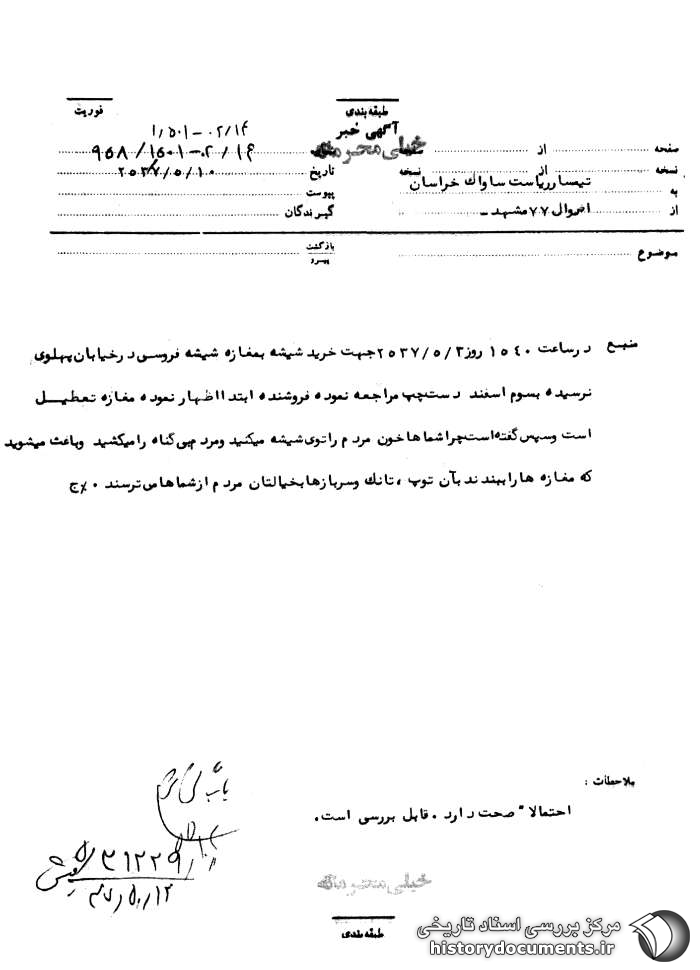 طبقه‌بندی
فوریت
آگهی خبر
خیلی محرمانه
۱/۵۰۱-۰۲/۱۴
صفحه از
۹۵۸/۱۵۰۱-۰۲/۱۴
نسخه از نسخه
تاریخ ۲۵۳۷/۵/۱۰
به تیسار ریاست ساواک خراسان
پیوست
از احوال ۷۷ مشهد-
گیرندگان
موضوع
بازگشت
پیرو
منبع
در ساعت ۱۵۴۰ روز ۲۵۳۷/۵/۳ جهت خرید شیشه بمغازه شیشه فروسی در خیابان پهلوی
نرسیده بسوم اسفند دست چپ مراجعه نموده فروشنده ابتدا اظهار نموده مغازه تعطیل
است وسپس گفته است چرا شماها خون مردم را توی شیشه میکنید ومردم بی گناه را میکشید وباعث میشوید
که مغازه ها را ببندند بآن توپ ، تانک وسربازها بخیالتان مردم از شماها می ترسند ۰ %ج
ملاحظات :
احتمالا" صحت دارد ۰ قابل بررسی است.
۳۱۲۲۹
۳۷/۵/۱۲
خیلی محرمانه
طبقه بندی
مرکز بررسی اسناد تاریخی
historydocuments.ir